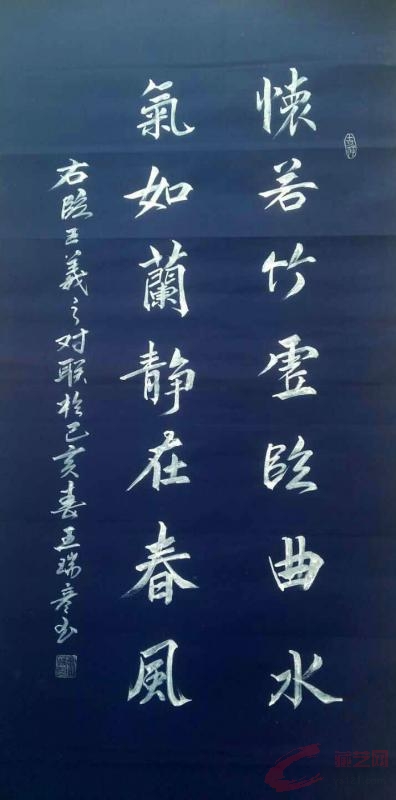 懷若竹虛臨曲水
氣如蘭靜在春風
右臨王羲之对联於己亥春王瑞彦书